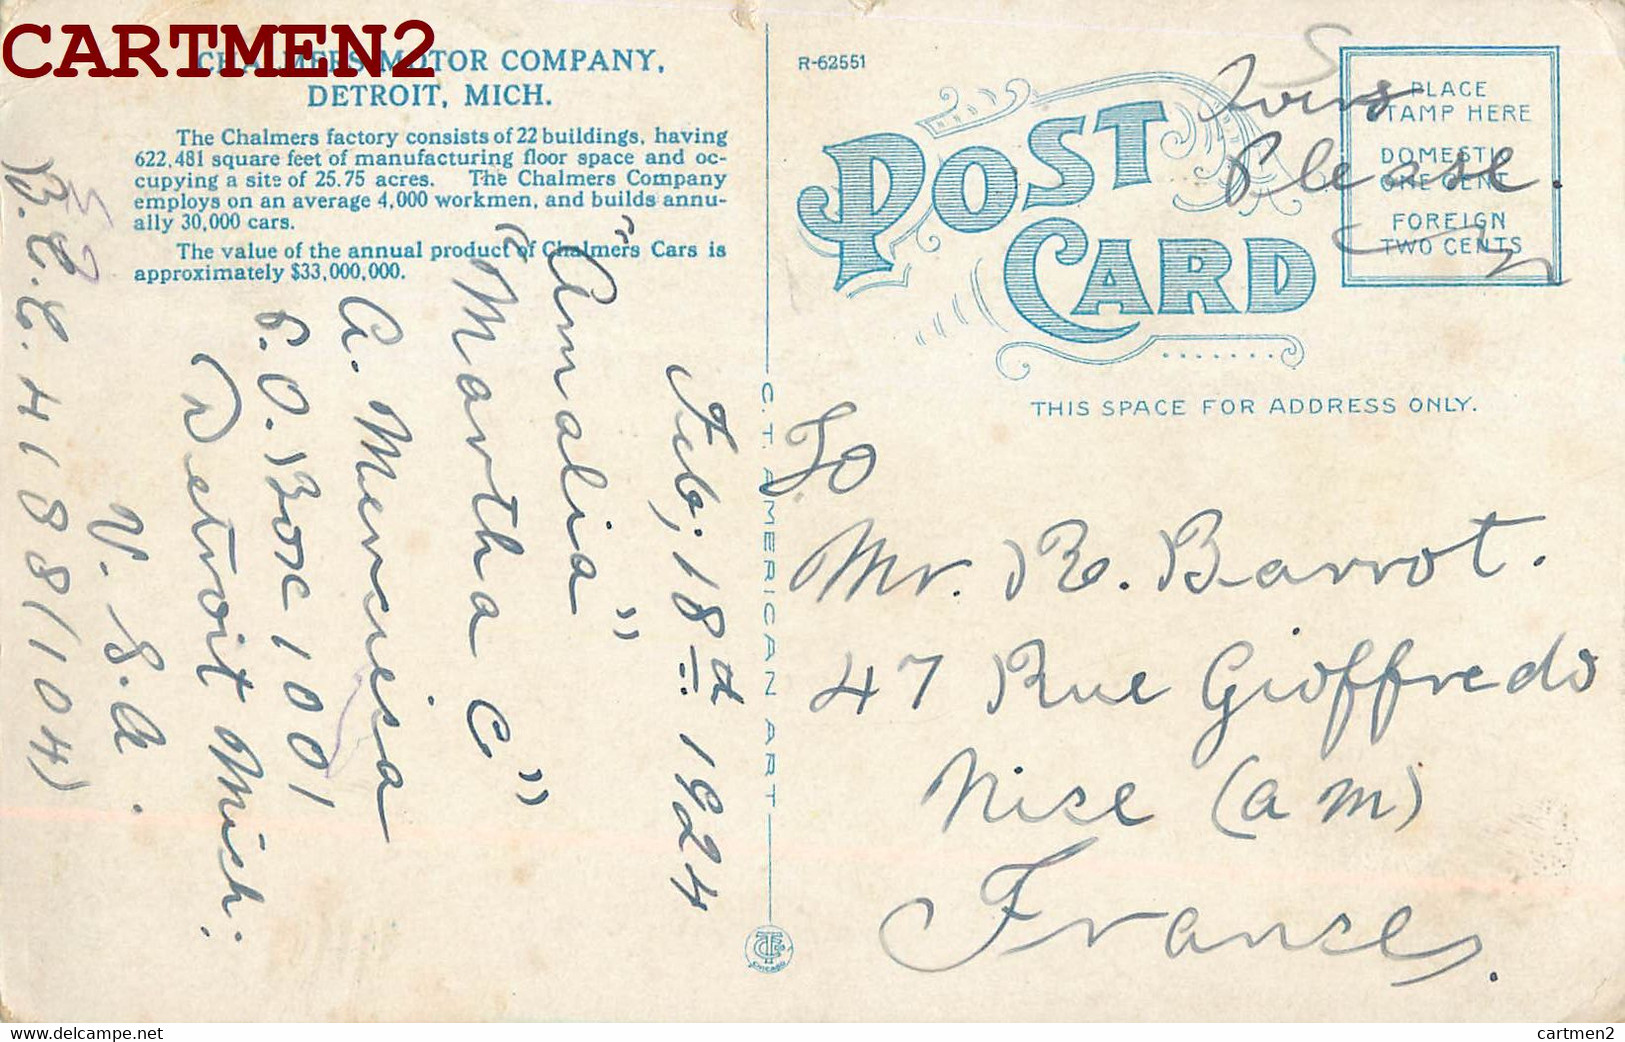 CARTMEN2
CHALMERS MOTOR COMPANY,
DETROIT, MICH.
The Chalmers factory consists of 22 buildings, having
622,481 square feet of manufacturing floor space and oc-
cupying a site of 25.75 acres. The Chalmers Company
employs on an average 4,000 workmen, and builds annu-
ally 30,000 cars.
The value of the annual product of Chalmers Cars is
approximately $33,000,000.
Feb, 18th 1924
"Amalia"
"Martha C"
A. Menciesa
P.O. Box 1001
Detroit Mich:
U.S.A.
C. T. AMERICAN ART
Chicago
R-62551
POST
CARD
PLACE
STAMP HERE
DOMESTIC
ONE CENT
FOREIGN
TWO CENTS
Please.
THIS SPACE FOR ADDRESS ONLY.
To
Mr. R. Barrot.
47 Rue Gioffredo
Nise (a m)
France.
delcampe.net
cartmen2